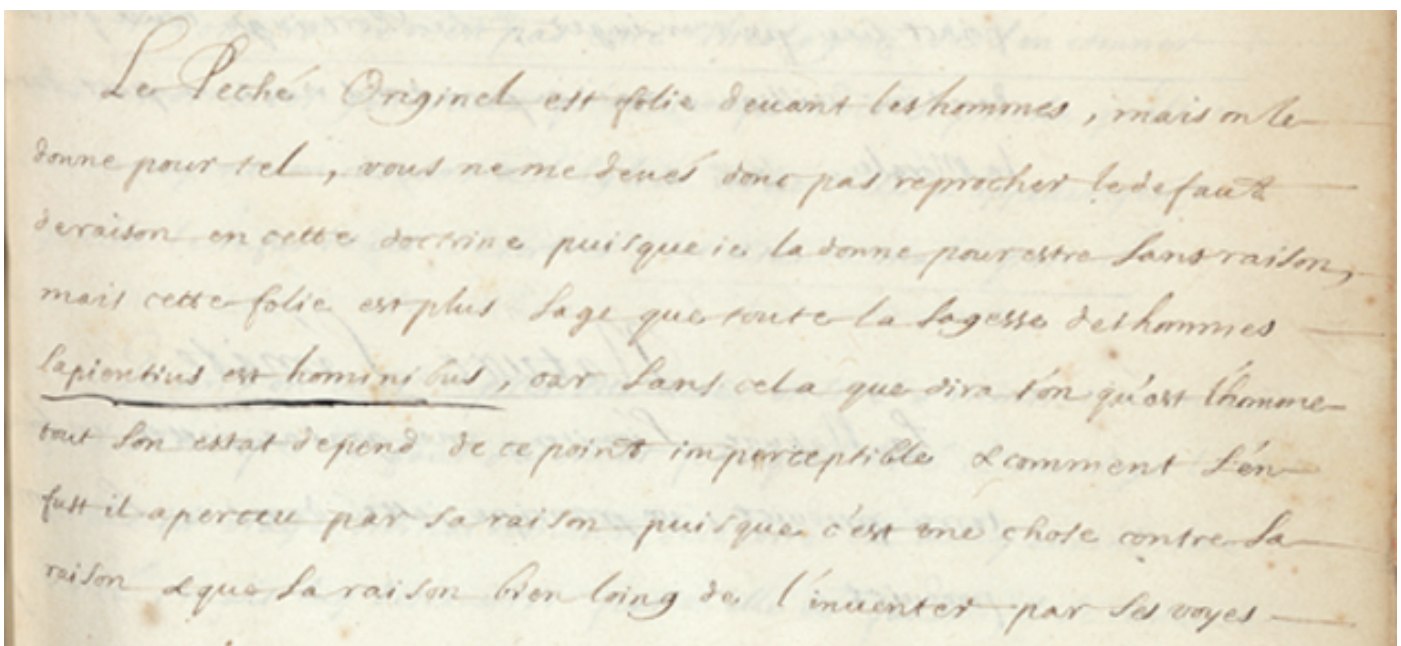 Le Peché Originel est folie deuant les hommes, mais on le
donne pour tel, vous ne me deués donc pas reprocher le defaut
de raison en cette doctrine puisque ie la donne pour estre sans raison,
mais cette folie est plus sage que toute la sagesse des hommes
sapientius est hominibus, car sans cela que dira t'on qu'est l'homme
tout son estat depend de ce point imperceptible & comment s'én
fust il aperceu par sa raison puisque c'est une chose contre sa
raison & que sa raison bien loing de l'inuenter par ses voyes